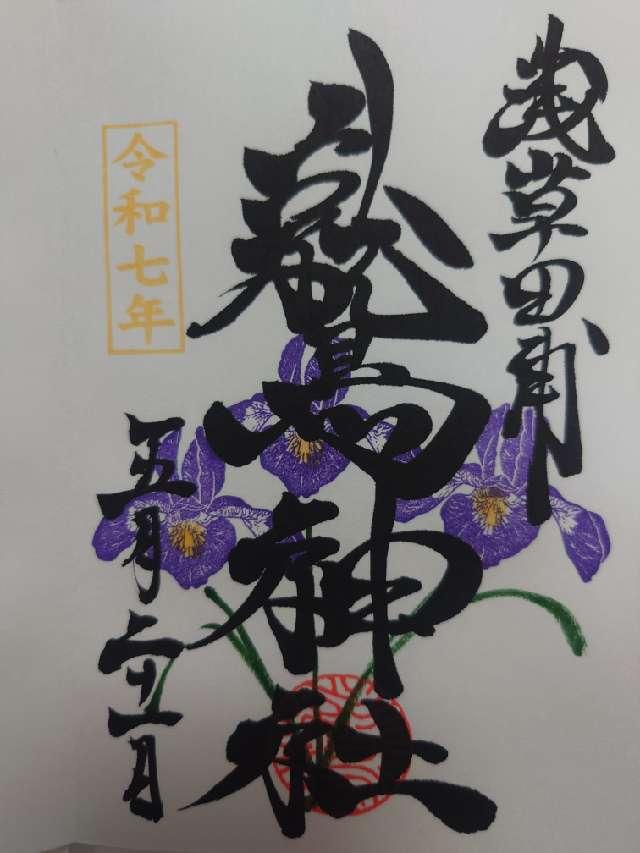 浅草田甫
鷲神社
令和七年
五月二十一日